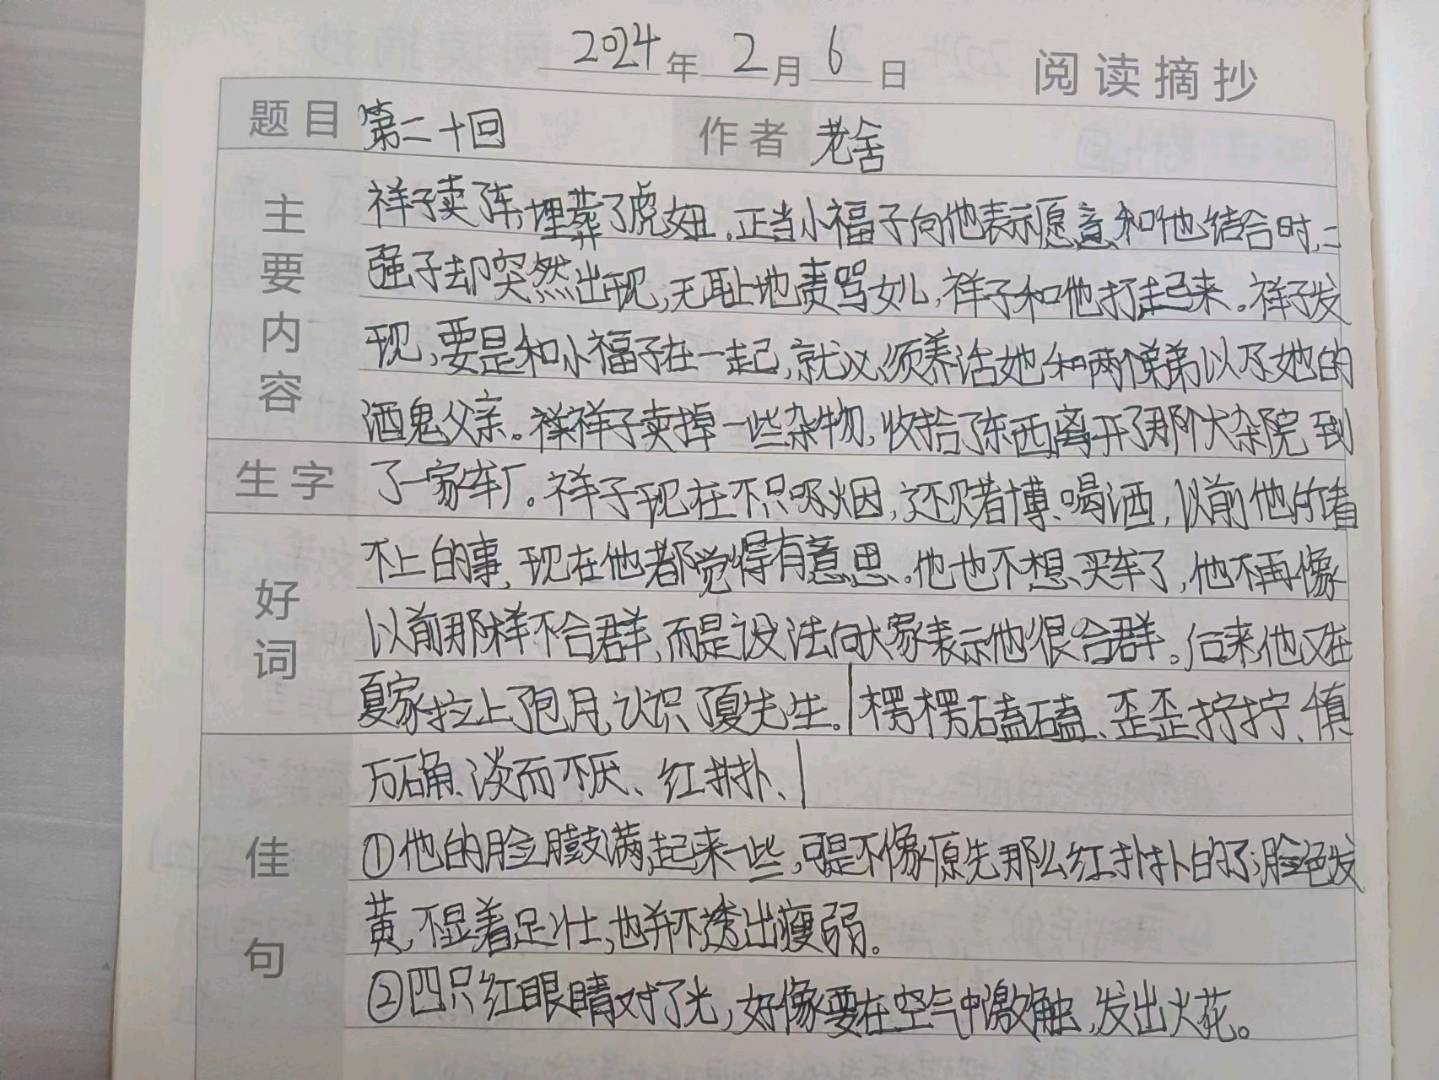 2024年2月6日 阅读摘抄
题目 第二十回 作者 老舍
主要内容
祥子卖了车,埋葬了虎妞。正当小福子向他表示愿意和他结合时,二
强子却突然出现,无耻地责骂女儿,祥子和他打起来。祥子发
现,要是和小福子在一起,就必须养活她和两个弟弟以及她的
酒鬼父亲。祥子卖掉一些杂物,收拾了东西离开了那个大杂院到
生字
了一家车厂。祥子现在不只吸烟,还赌博、喝酒,以前他所看
好词
不上的事,现在他都觉得有意思。他也不想买车了,他不再像
以前那样不合群,而是设法向大家表示他很合群。后来,他又在
夏家拉上了包月,认识了夏先生。|楞楞磕磕、歪歪拧拧、慎
万确、淡而不厌、红扑扑、|
佳句
①他的脸臌满起来一些,可是不像原先那么红扑扑的了;脸色发
黄,不显着足壮,也并不透出瘦弱。
②四只红眼睛对了光,好像要在空气中激触,发出火花。